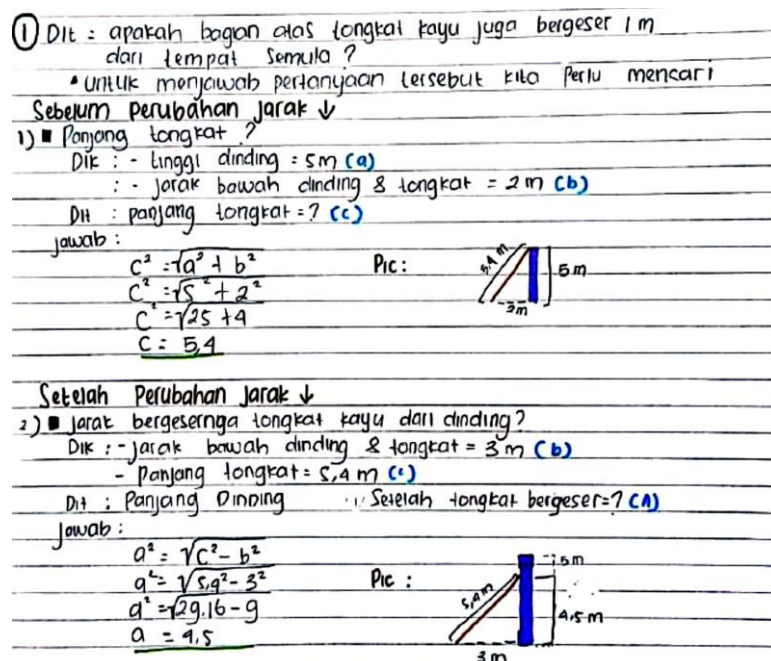 ① Dit : apakah bagian atas tongkat kayu juga bergeser 1 m
dari tempat semula ?
• untuk menjawab pertanyaan tersebut kita perlu mencari
Sebelum perubahan jarak ↓
1) ■ Panjang tongkat ?
Dik : - tinggi dinding = 5m (a)
: - jarak bawah dinding & tongkat = 2 m (b)
Dit : panjang tongkat = ? (c)
jawab :
c² = √a² + b²
c² = √5² + 2²
c² = √25 + 4
c = 5,4
Pic :
5,4 m
5 m
2m
Setelah Perubahan Jarak ↓
2) ■ Jarak bergesernya tongkat kayu dari dinding ?
Dik : - Jarak bawah dinding & tongkat = 3 m (b)
- Panjang tongkat = 5,4 m (c)
Dit : Panjang Dinding Setelah tongkat bergeser = ? (A)
Jawab :
a² = √c² - b²
a² = √5,4² - 3²
a² = √29.16 - 9
a = 4,5
Pic :
5,4 m
5m
4,5 m
3 m